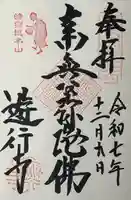 奉拝
令和七年
十二月六日
南無阿弥陀佛
遊行寺